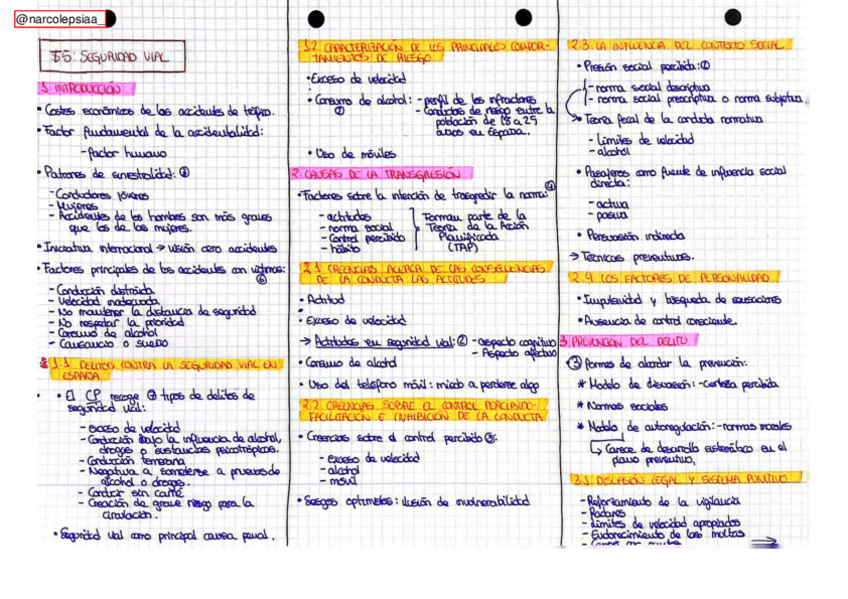 @narcolepsiaa_
T5: SEGURIDAD VIAL
1. INTRODUCCIÓN
• Costes económicos de los accidentes de tráfico.
• Factor fundamental de la accidentalidad:
- factor humano
• Patrones de siniestralidad: ③
- Conductores jóvenes
- Mujeres
- Accidentes de los hombres son más graves
que los de las mujeres.
• Iniciativa internacional → visión cero accidentes
• Factores principales de los accidentes con víctimas:
⑥
- Conducción distraída
- Velocidad inadecuada
- No mantener la distancia de seguridad
- No respetar la prioridad
- Consumo de alcohol
- Cansancio o sueño
1.1. DELITOS CONTRA LA SEGURIDAD VIAL EN
ESPAÑA
• El CP recoge ⑦ tipos de delitos de
seguridad vial:
- exceso de velocidad
- Conducción bajo la influencia de alcohol,
drogas o sustancias psicotrópicas.
- Conducción temeraria
- Negativa a someterse a pruebas de
alcohol o drogas.
- Conducir sin carné
- Creación de grave riesgo para la
circulación.
• Seguridad vial como principal causa penal.
1.2. CARACTERIZACIÓN DE LOS PRINCIPALES COMPOR-
TAMIENTOS DE RIESGO
• Exceso de velocidad
• Consumo de alcohol: - perfil de los infractores
② - Conductas de riesgo entre la
población de 18 a 25
años en España.
• Uso de móviles
2. CAUSAS DE LA TRANSGRESIÓN
• Factores sobre la intención de trasgredir la norma: ④
- actitudes
- norma social
- Control percibido
- hábito
Forman parte de la
Teoría de la Acción
Planificada
(TAP)
2.1. CREENCIAS ACERCA DE LAS CONSECUENCIAS
DE LA CONDUCTA: LAS ACTITUDES
• Actitud
• Exceso de velocidad
→ Actitudes en seguridad vial: ② - aspecto cognitivo
- Aspecto afectivo
• Consumo de alcohol
• Uso del teléfono móvil: miedo a perderse algo
2.2. CREENCIAS SOBRE EL CONTROL PERCIBIDO:
FACILITACIÓN E INHIBICIÓN DE LA CONDUCTA
• Creencias sobre el control percibido ③:
- exceso de velocidad
- alcohol
- móvil
• Sesgos optimistas: ilusión de invulnerabilidad
2.3. LA INFLUENCIA DEL CONTEXTO SOCIAL
• Presión social percibida: ②
- norma social descriptiva
- norma social prescriptiva o norma subjetiva
→ Teoría focal de la conducta normativa
- Límites de velocidad
- alcohol
• Pasajeros como fuente de influencia social
directa:
- activa
- pasiva
• Persuasión indirecta
→ Técnicas preventivas.
2.4. LOS FACTORES DE PERSONALIDAD
• Impulsividad y búsqueda de sensaciones
• Ausencia de control consciente.
3. PREVENCIÓN DEL DELITO
③ formas de abordar la prevención:
* Modelo de disuasión: - Certeza percibida
* Normas sociales
* Modelo de autoregulación: - normas morales
↳ Carece de desarrollo sistemático en el
plano preventivo.
3.1. DISUASIÓN LEGAL Y SISTEMA PUNITIVO
- Reforzamiento de la vigilancia
- Radares
- Límites de velocidad apropiados
- Endurecimiento de las multas